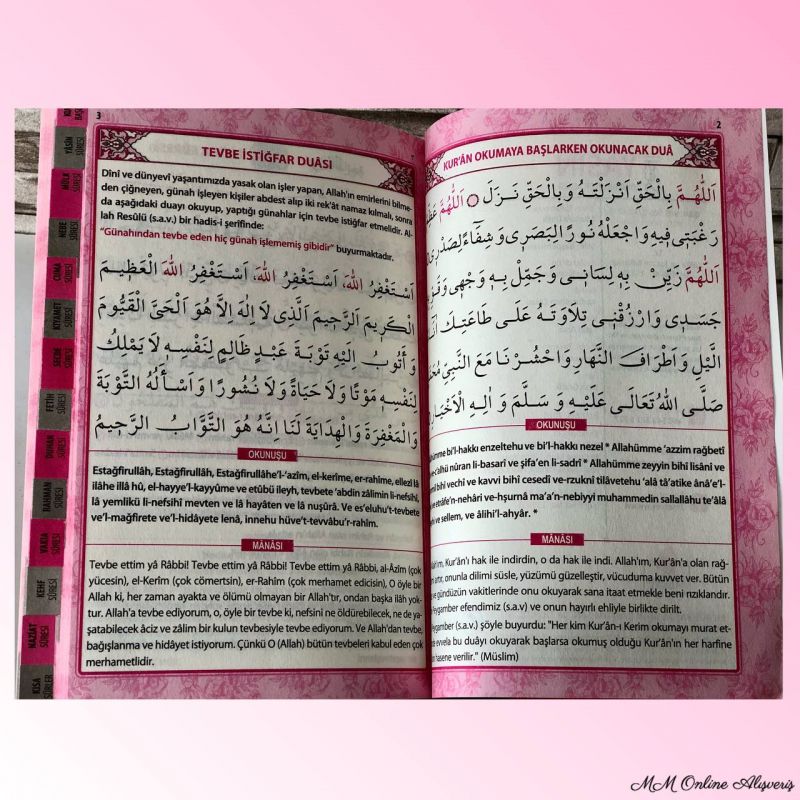 3
TEVBE İSTİĞFAR DUÂSI
Dînî ve dünyevî yaşantımızda yasak olan işler yapan, Allah'ın emirlerini bilme-
den çiğneyen, günah işleyen kişiler abdest alıp iki rek'ât namaz kılmalı, sonra
da aşağıdaki duayı okuyup, yaptığı günahlar için tevbe istiğfar etmelidir. Al-
lah Resûlü (s.a.v.) bir hadis-i şerifinde:
"Günahından tevbe eden hiç günah işlememiş gibidir" buyurmaktadır.
اَسْتَغْفِرُ اللهَ، اَسْتَغْفِرُ اللهَ، اَسْتَغْفِرُ اللهَ الْعَظِيمَ
الْكَرِيمَ الرَّحِيمَ الَّذِي لَا اِلٰهَ اِلَّا هُوَ الْحَيَّ الْقَيُّومَ
وَ اَتُوبُ اِلَيْهِ تَوْبَةَ عَبْدٍ ظَالِمٍ لِنَفْسِهِ لَا يَمْلِكُ
لِنَفْسِهِ مَوْتًا وَلَا حَيَاةً وَلَا نُشُورًا وَ اَسْأَلُهُ التَّوْبَةَ
وَالْمَغْفِرَةَ وَالْهِدَايَةَ لَنَا اِنَّهُ هُوَ التَّوَّابُ الرَّحِيمُ
OKUNUŞU
Estağfirullâh, Estağfirullâh, Estağfirullâhe'l-'azîm, el-kerîme, er-rahîme, ellezî lâ
ilâhe illâ hû, el-hayye'l-kayyûme ve etûbü ileyh, tevbete 'abdin zâlimin li-nefsihî,
lâ yemlikü li-nefsihî mevten ve lâ hayâten ve lâ nuşûrâ. Ve es'eluhu't-tevbete
ve'l-mağfirete ve'l-hidâyete lenâ, innehu hüve't-tevvâbu'r-rahîm.
MÂNÂSI
Tevbe ettim yâ Râbbi! Tevbe ettim yâ Râbbi! Tevbe ettim yâ Râbbi, al-Âzîm (çok
yücesin), el-Kerîm (çok cömertsin), er-Rahîm (çok merhamet edicisin), O öyle bir
Allah ki, her zaman ayakta ve ölümü olmayan bir Allah'tır, ondan başka ilâh yok-
tur. Allah'a tevbe ediyorum, o, öyle bir tevbe ki, nefsini ne öldürebilecek, ne de ya-
şatabilecek âciz ve zâlim bir kulun tevbesiyle tevbe ediyorum. Ve Allah'dan tevbe,
bağışlanma ve hidâyet istiyorum. Çünkü O (Allah) bütün tevbeleri kabul eden çok
merhametlidir.
2
KUR'ÂN OKUMAYA BAŞLARKEN OKUNACAK DUÂ
اَللّٰهُمَّ بِالْحَقِّ اَنْزَلْتَهُ وَ بِالْحَقِّ نَزَلَ اَللّٰهُمَّ
رَغْبَتِي فِيهِ وَاجْعَلْهُ نُورًا لِبَصَرِي وَ شِفَاءً لِصَدْرِي
اَللّٰهُمَّ زَيِّنْ بِهِ لِسَانِي وَ جَمِّلْ بِهِ وَجْهِي
جَسَدِي وَ ارْزُقْنِي تِلَاوَتَهُ عَلَى طَاعَتِكَ
الَّيْلِ وَ اَطْرَافَ النَّهَارِ وَ احْشُرْنَا مَعَ النَّبِيِّ
صَلَّى اللهُ تَعَالَى عَلَيْهِ وَ سَلَّمَ وَ اٰلِهِ الْاَخْيَارِ
OKUNUŞU
bi'l-hakkı enzeltehu ve bi'l-hakkı nezel * Allahümme 'azzim rağbetî
nûran li-basarî ve şifa'en li-sadrî * Allahümme zeyyin bihî lisânî ve
bihî vechî ve kavvi bihî cesedî ve-rzuknî tilâvetehu 'alâ tâ'atike ânâ'e'l-
ve etrâfe'n-nehâri ve-hşurnâ ma'a'n-nebiyyi muhammedin sallallahu te'âlâ
ve sellem, ve âlihi'l-ahyâr. *
MÂNÂSI
Kur'ân'ı hak ile indirdin, o da hak ile indi. Allah'ım, Kur'ân'a olan rağ-
artır, onunla dilimi süsle, yüzümü güzelleştir, vücuduma kuvvet ver. Bütün
gündüzün vakitlerinde onu okuyarak sana itaat etmekle beni rızıklandır.
efendimiz (s.a.v) ve onun hayırlı ehliyle birlikte dirilt.
(s.a.v.) şöyle buyurdu: "Her kim Kur'ân-ı Kerim okumayı murat et-
evvela bu duâyı okuyarak başlarsa okumuş olduğu Kur'ân'ın her harfine
hasene verilir." (Müslim)
YÂSİN SÛRESİ
MÜLK SÛRESİ
NEBE SÛRESİ
CUMA SÛRESİ
KIYAMET SÛRESİ
SECDE SÛRESİ
FETİH SÛRESİ
DUHAN SÛRESİ
RAHMAN SÛRESİ
VAKIA SÛRESİ
KEHF SÛRESİ
NAZİAT SÛRESİ
KISA SÛRELER
MM Online Alışveriş